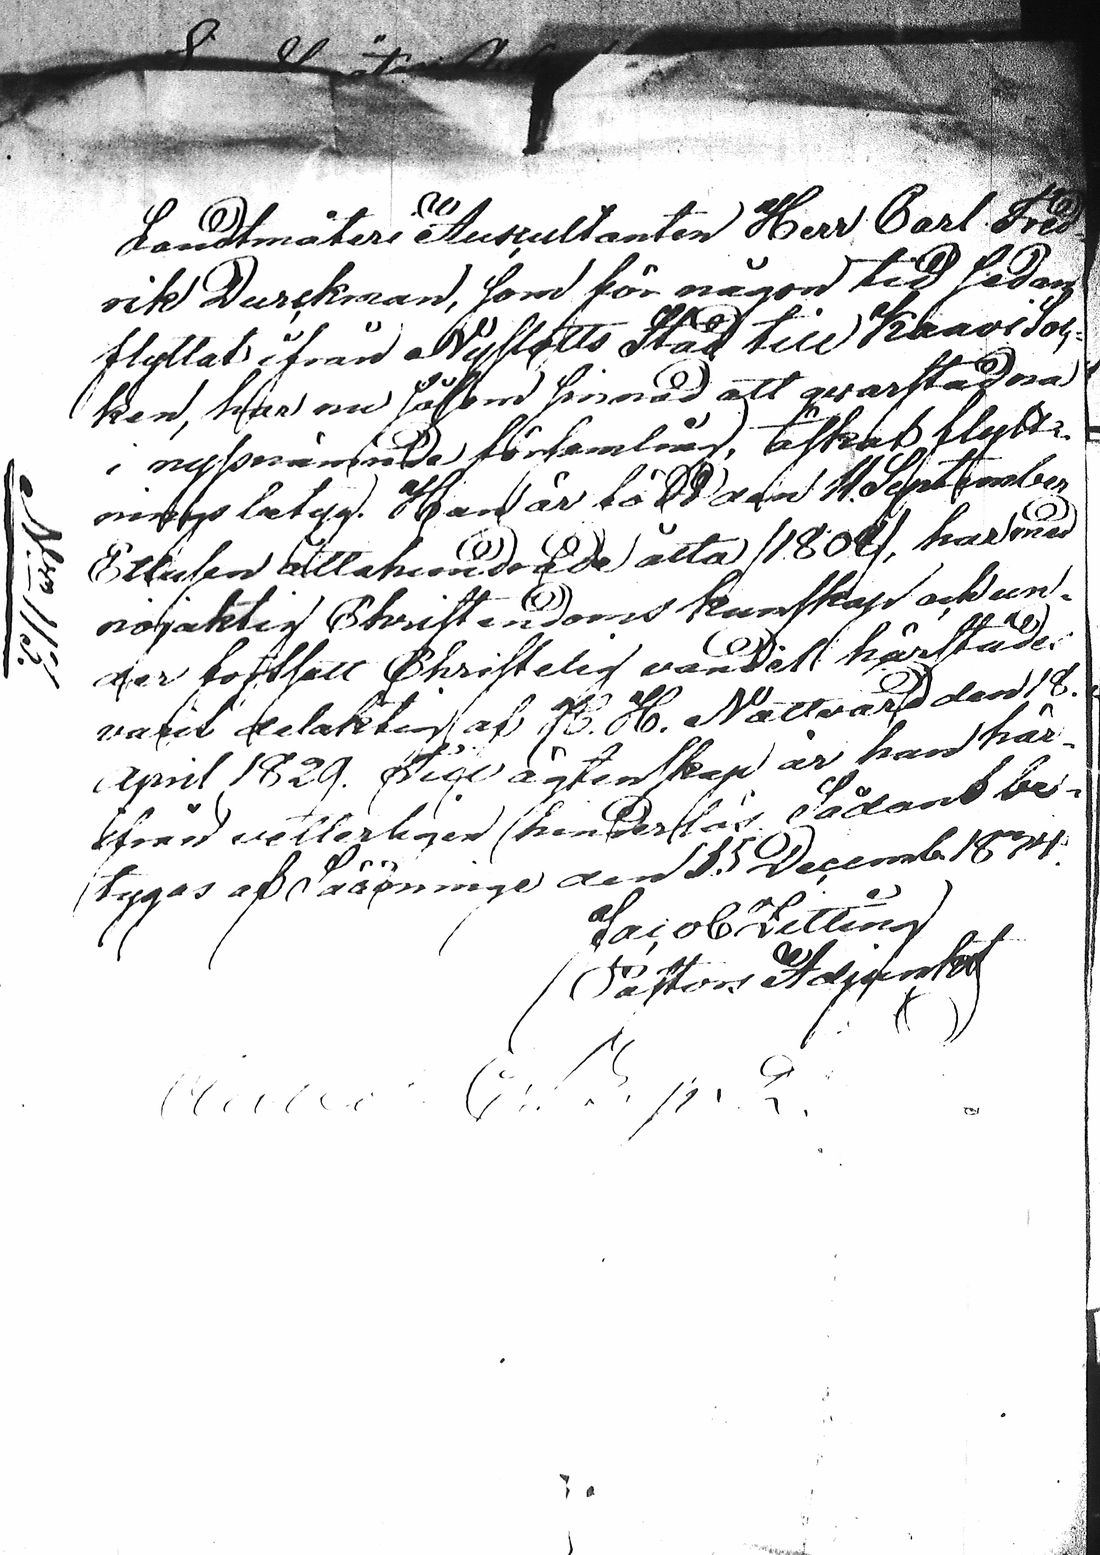 Landtmäteri Auscultanten Herr Carl Fred-
rik Durchman, som för någon tid sedan
flyttat ifrån Nyslotts Stad till Kaavi Soc-
ken, har nu såsom sinnad att qvarstadna
i nyssnämnde församling, äskat flytt-
ningsbetyg. Han är född den 11 September
Ettusen åttahundrade åtta (1808), har med
nöjaktig Christendoms kunskap och un-
der fortsatt Christelig vandel härstädes
varit delaktig af H. H. Nattvard den 18.
April 1829. Till ägtenskap är han här-
ifrån vetterligen hinderlös. Sådant be-
tygas af Sääminge den 15 Decemb. 1834.
Jacob Zitting
Pastors Adjunkt
Nro 115.